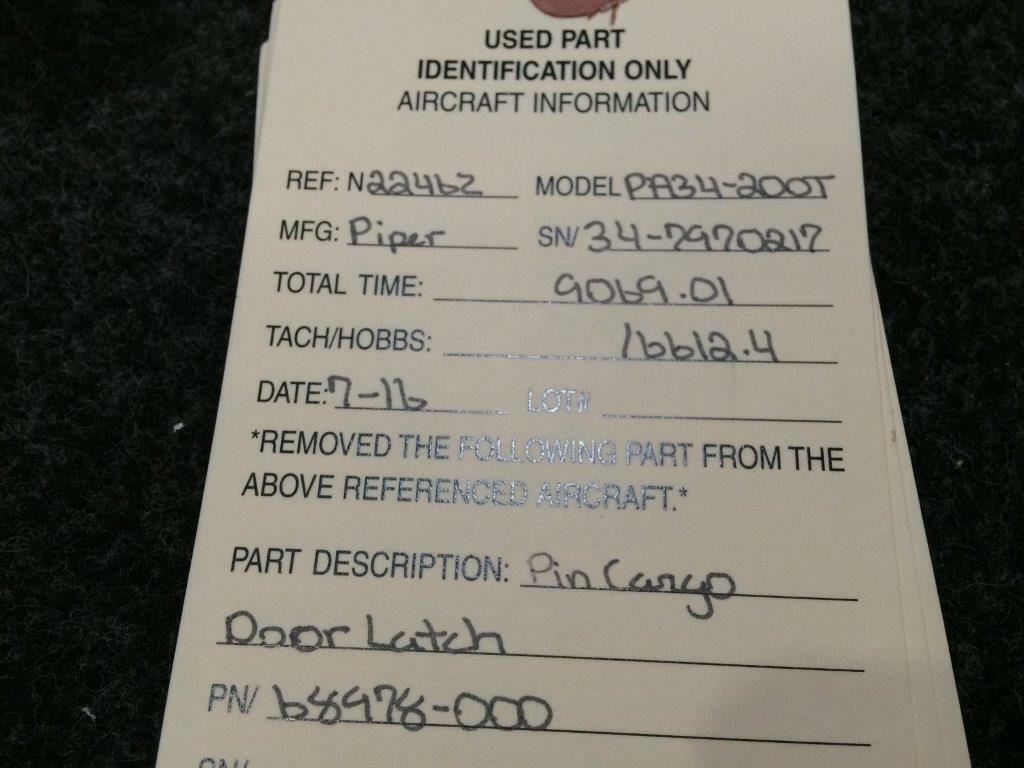 USED PART
IDENTIFICATION ONLY
AIRCRAFT INFORMATION
REF: N22462 MODEL PA34-200T
MFG: Piper SN/ 34-7970217
TOTAL TIME: 9069.01
TACH/HOBBS: 16612.4
DATE: 7-16 LOT#
*REMOVED THE FOLLOWING PART FROM THE
ABOVE REFERENCED AIRCRAFT.*
PART DESCRIPTION: Pin Cargo
Door Latch
PN/ 68978-000